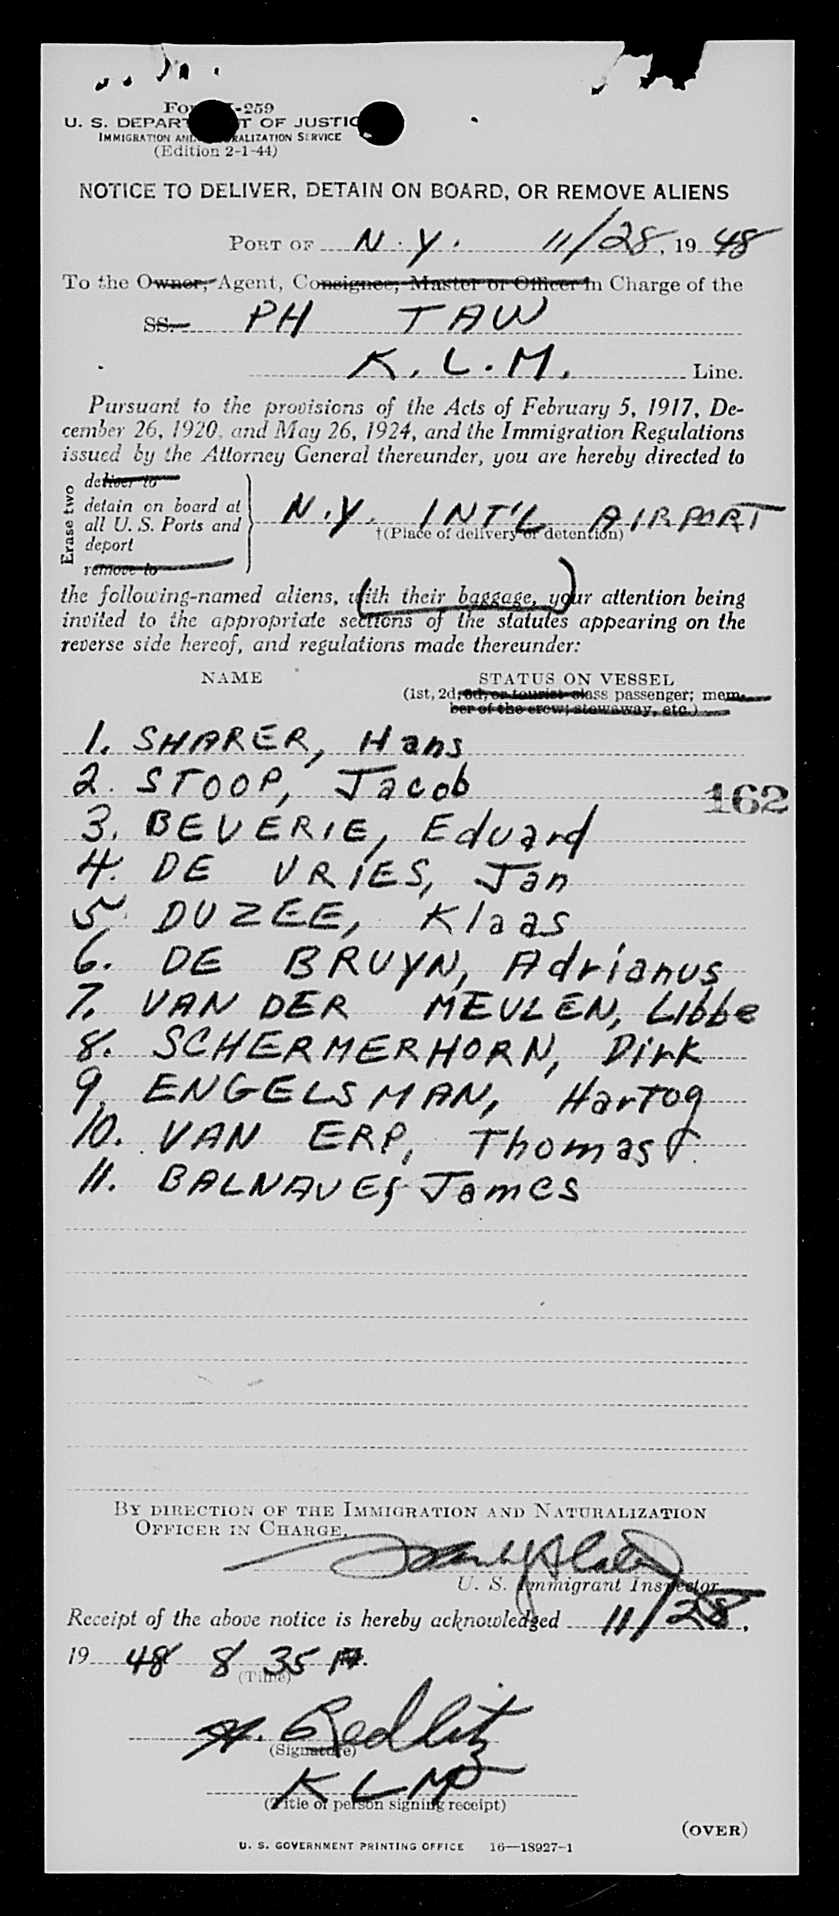 Form I-259
U. S. DEPARTMENT OF JUSTICE
IMMIGRATION AND NATURALIZATION SERVICE
(Edition 2-1-44)
NOTICE TO DELIVER, DETAIN ON BOARD, OR REMOVE ALIENS
PORT OF N.Y. 11/28, 19 48
To the Owner, Agent, Consignee, Master or Officer in Charge of the
SS. PH TAW
K.L.M. Line.
Pursuant to the provisions of the Acts of February 5, 1917, De-
cember 26, 1920, and May 26, 1924, and the Immigration Regulations
issued by the Attorney General thereunder, you are hereby directed to
Erase two
deliver to
detain on board at
all U. S. Ports and
deport
remove to
N.Y. INT'L AIRPORT
†(Place of delivery or detention)
the following-named aliens, with their baggage, your attention being
invited to the appropriate sections of the statutes appearing on the
reverse side hereof, and regulations made thereunder:
NAME STATUS ON VESSEL
(1st, 2d, 3d, or tourist class passenger; mem-
ber of the crew; stowaway, etc.)
1. SHARER, Hans
2. STOOP, Jacob
162
3. BEVERIE, Eduard
4. DE VRIES, Jan
5. DUZEE, Klaas
6. DE BRUYN, Adrianus
7. VAN DER MEULEN, Libbe
8. SCHERMERHORN, Dirk
9. ENGELSMAN, Hartog
10. VAN ERP, Thomas J.
11. BALNAVES, James
BY DIRECTION OF THE IMMIGRATION AND NATURALIZATION
OFFICER IN CHARGE,
U. S. Immigrant Inspector
Receipt of the above notice is hereby acknowledged 11/28,
19 48 8 35 A.
(Time)
H. Redlitz
(Signature)
KLM
(Title of person signing receipt)
(OVER)
U. S. GOVERNMENT PRINTING OFFICE 16—18927-1